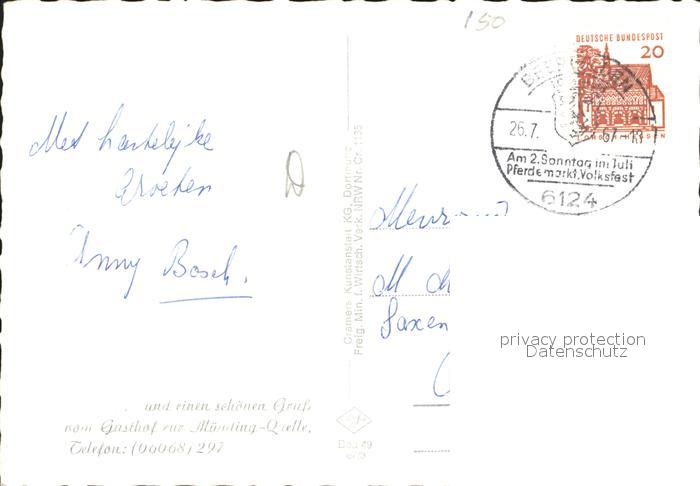 150
DEUTSCHE BUNDESPOST
20
26.7. 67-13
Am 2. Sonntag im Juli
Pferdemarkt, Volksfest
6124
Met hartelijke
Groeten
Anny Bosch.
D
Cramers Kunstanstalt KG, Dortmund
Freig. Min. f. Wirtsch. Verk. NRW Nr. Cr. 1135
M
privacy protection
Datenschutz
und einen schönen Gruß
vom Gasthof zur Mümling-Quelle,
Telefon: (06068) 297
49